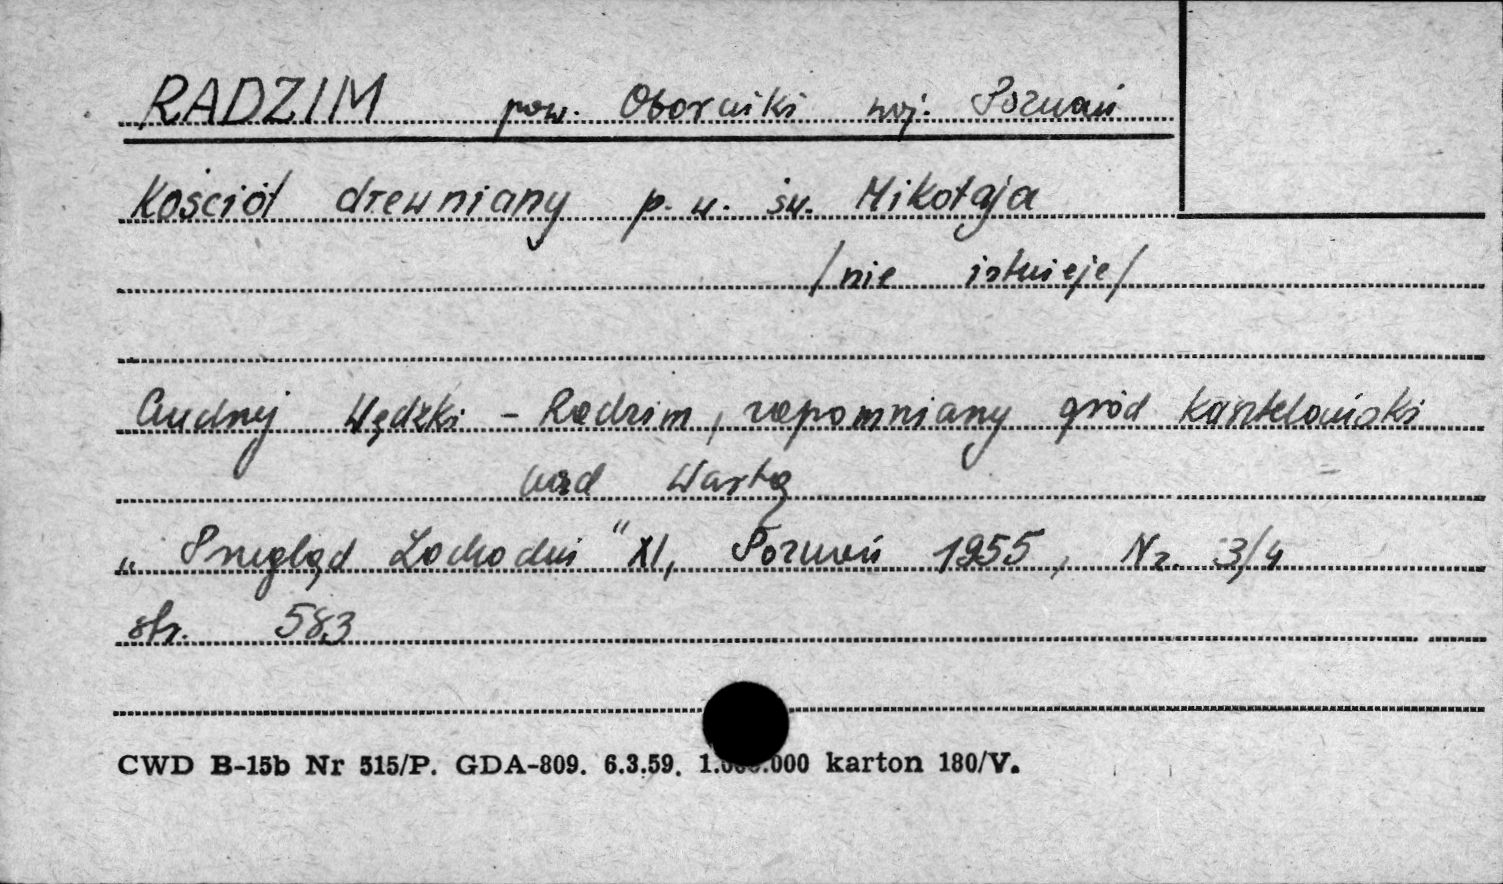 RADZIM pow. Oborniki woj. Poznań
Kościół drewniany p.w. św. Mikołaja
/nie istnieje/
Andrzej Wędzki - Radzim, zapomniany gród kasztelański
nad Wartą
„Przegląd Zachodni" XI, Poznań 1955, Nr. 3/4
str. 583
CWD B-15b Nr 515/P. GDA-809. 6.3.59. 1.000.000 karton 180/V.